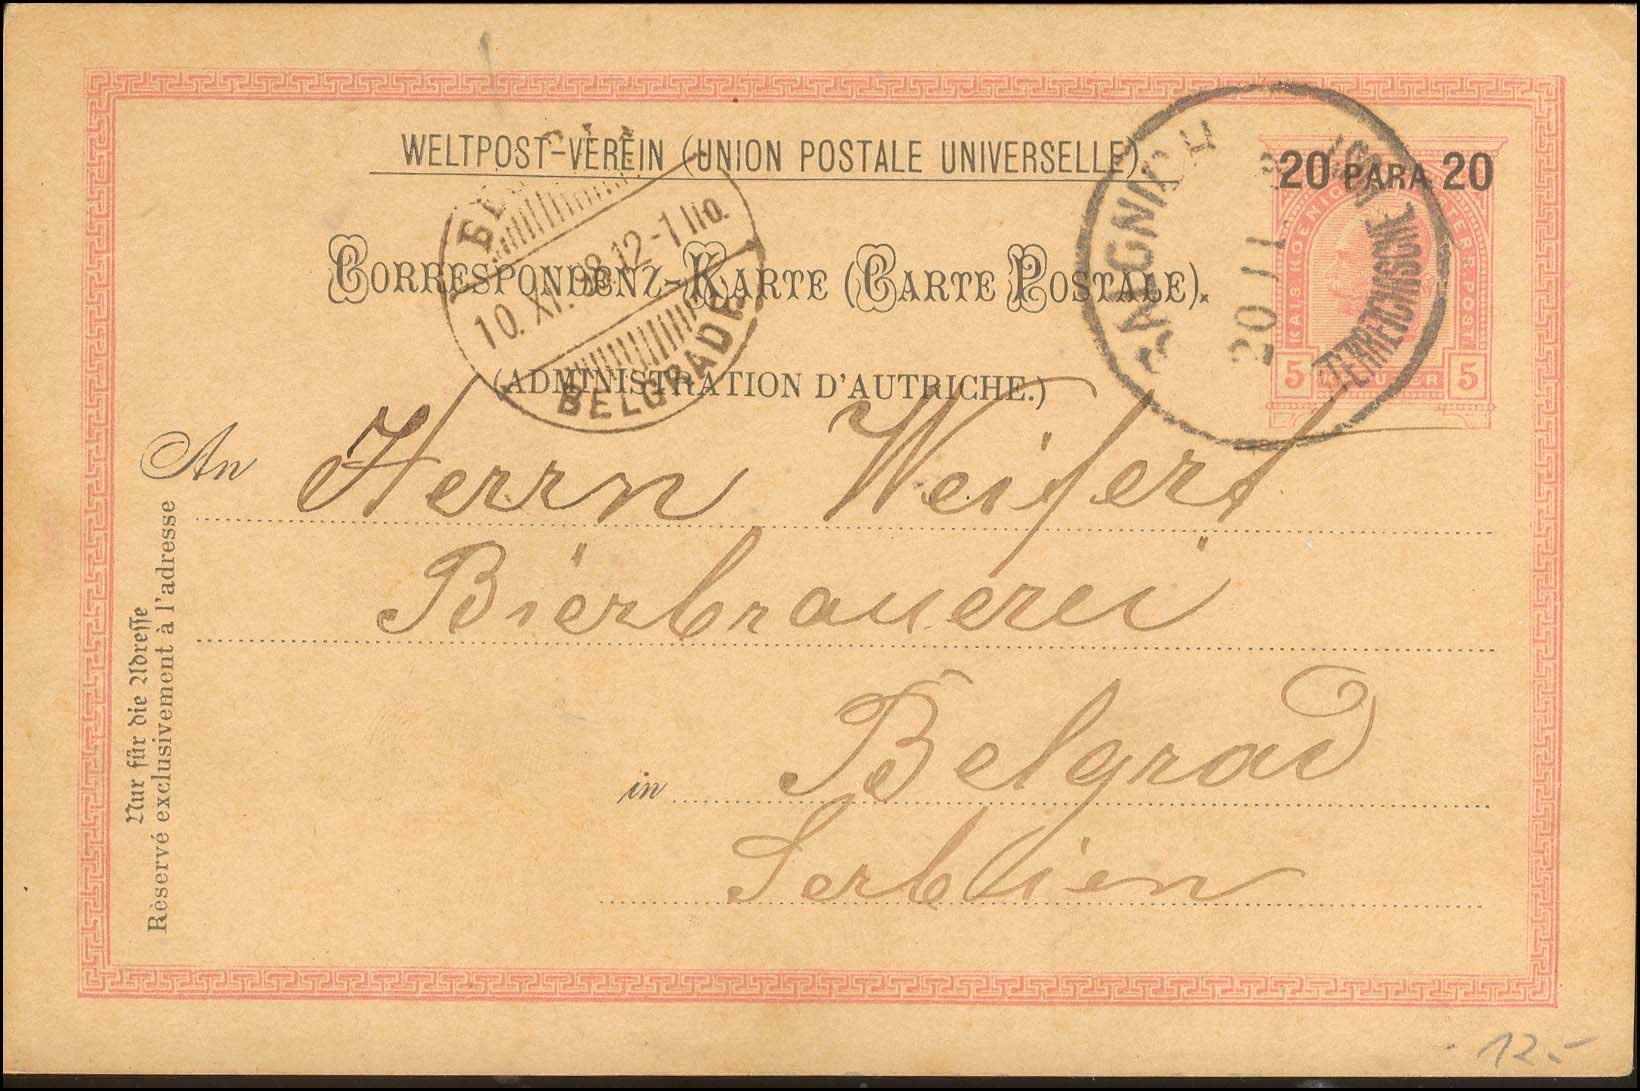 WELTPOST-VEREIN (UNION POSTALE UNIVERSELLE).
20 PARA 20
CORRESPONDENZ-KARTE (CARTE POSTALE).
(ADMINISTRATION D'AUTRICHE.)
10. XI. 98. 12-1
BELGRADE
20/11
KAIS. KOENIGL.
5 5
An Herrn Weifert
Bierbrauerei
in Belgrad
Serbien
Nur für die Adresse
Rèservé exclusivement à l'adresse
12.-